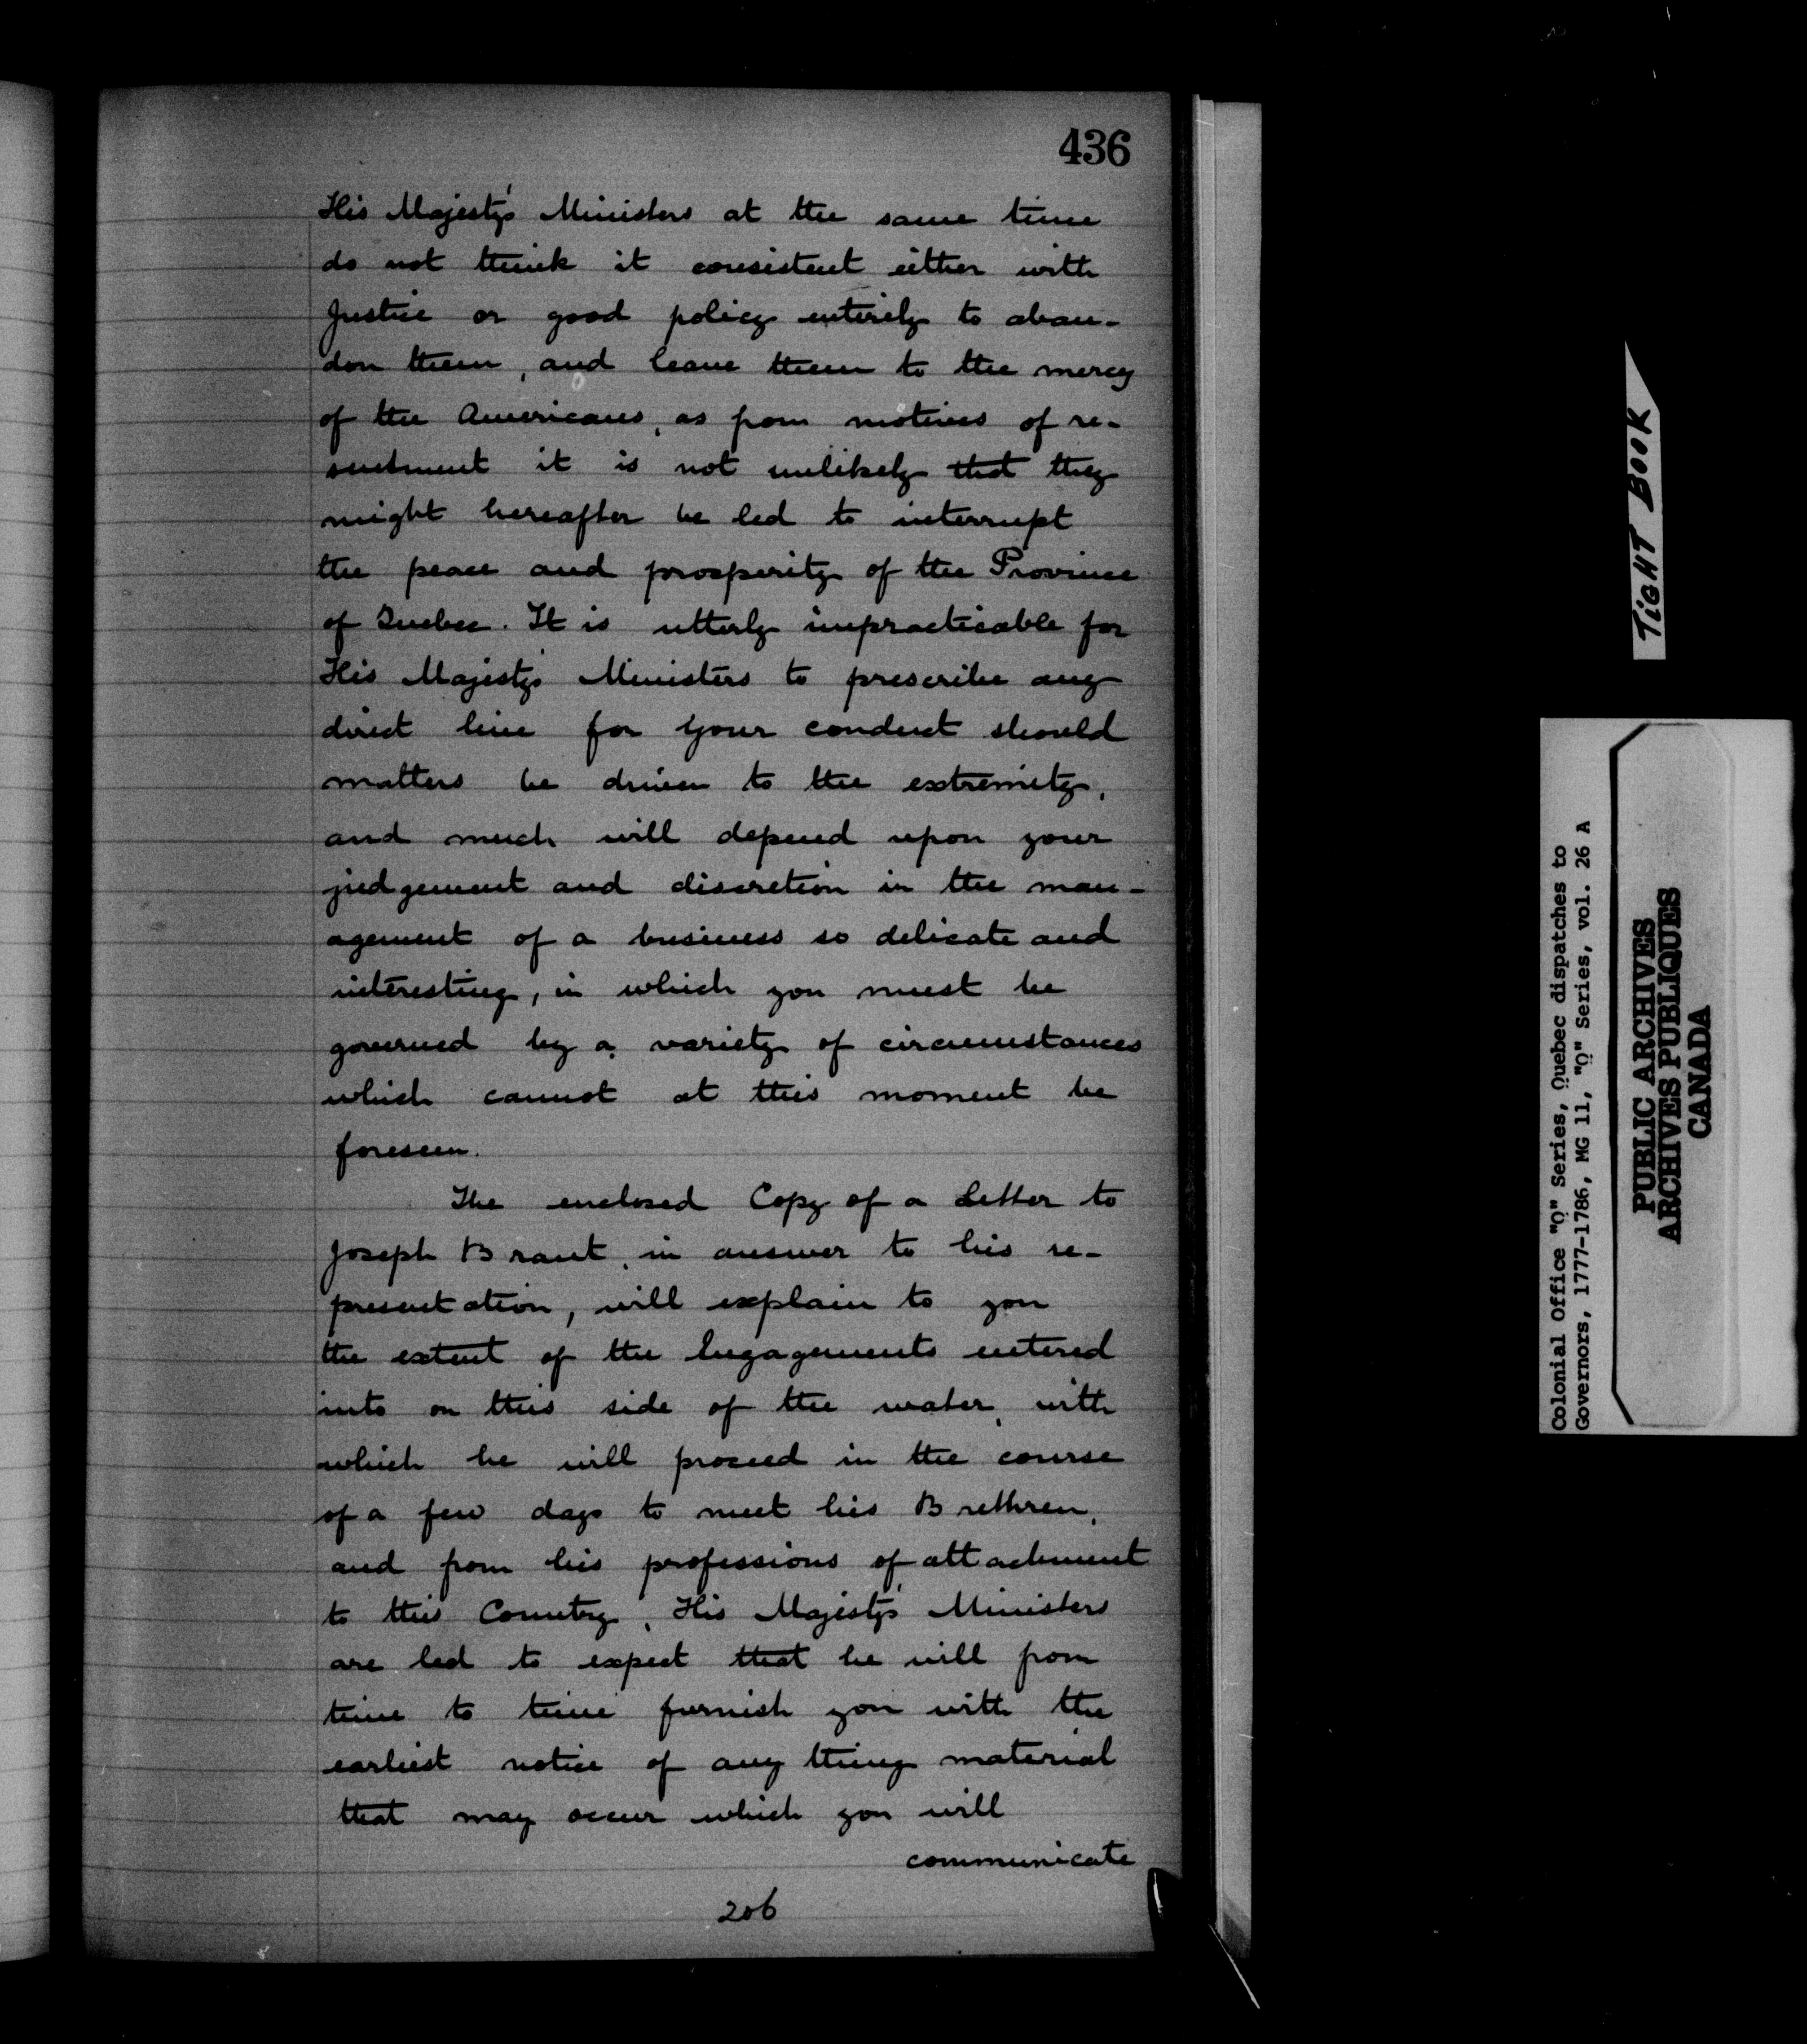 436
His Majesty's Ministers at the same time
do not think it consistent either with
Justice or good policy entirely to aban-
don them, and leave them to the mercy
of the Americans, as from motives of re-
sentment it is not unlikely that they
might hereafter be led to interrupt
the peace and prosperity of the Province
of Quebec. It is utterly impracticable for
His Majesty's Ministers to prescribe any
direct line for your conduct should
matters be driven to the extremity,
and much will depend upon your
judgement and discretion in the man-
agement of a business so delicate and
interesting, in which you must be
governed by a variety of circumstances
which cannot at this moment be
foreseen.
The enclosed Copy of a Letter to
Joseph Brant, in answer to his re-
presentation, will explain to you
the extent of the Engagements entered
into on this side of the water, with
which he will proceed in the course
of a few days to meet his Brethren,
and from his professions of attachment
to this Country, His Majesty's Ministers
are led to expect that he will from
time to time furnish you with the
earliest notice of any thing material
that may occur which you will
communicate
206
TIGHT BOOK
Colonial Office "Q" Series, Quebec dispatches to
Governors, 1777-1786, MG 11, "Q" Series, vol. 26 A
PUBLIC ARCHIVES
ARCHIVES PUBLIQUES
CANADA